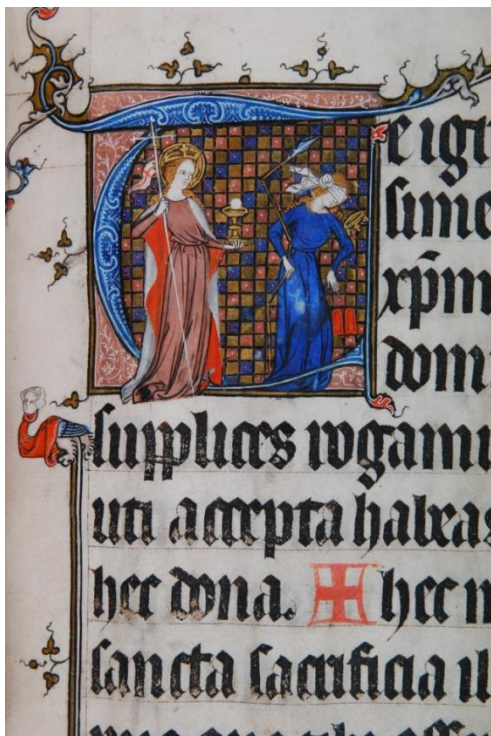 Te igit
sime
xp̄m
dom
supplices rogamu
uti accepta habeas
hec dona. ✠ hec m
sancta sacrificia il